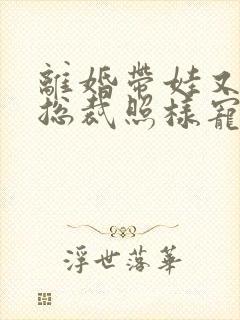 離婚帶娃又
總裁照樣寵
浮世落華